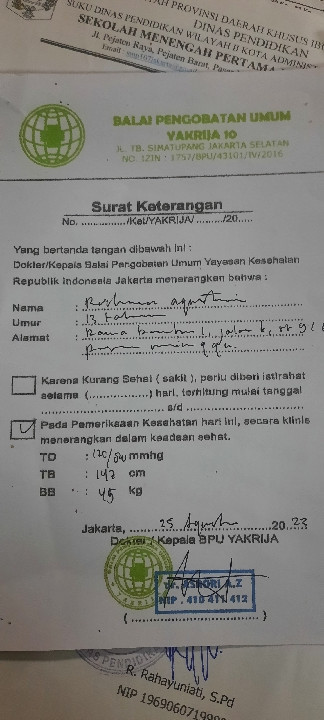 PROVINSI DAERAH KHUSUS IB
SUKU DINAS PENDIDIKAN WILAYAH II KOTA ADMINIS
DINAS PENDIDIKAN
SEKOLAH MENENGAH PERTAMA
Jl. Pejaten Raya, Pejaten Barat,
Email
BALAI PENGOBATAN UMUM
YAKRIJA 10
JL. TB. SIMATUPANG JAKARTA SELATAN
NO. IZIN : 1757/BPU/43101/IV/2016
Surat Keterangan
No. ................/Ket/YAKRIJA/........./20.....
Yang bertanda tangan dibawah ini :
Dokter/Kepala Balai Pengobatan Umum Yayasan Kesehatan
Republik Indonesia Jakarta menerangkan bahwa :
Nama : agustini
Umur : 13 tahun
Alamat : Rawa bambu 1, jalan
pasar minggu.
Karena Kurang Sehat ( sakit ), perlu diberi istirahat
selama (..................) hari, terhitung mulai tanggal
s/d
Pada Pemeriksaan Kesehatan hari ini, secara klinis
menerangkan dalam keadaan sehat.
TD : 120/80 mmhg
TB : 147 cm
BB : 45 kg
Jakarta, 25 Agustus 2023
Dokter / Kepala BPU YAKRIJA
NIP . 418 411 412
(..................................)
R. Rahayuniati, S.Pd